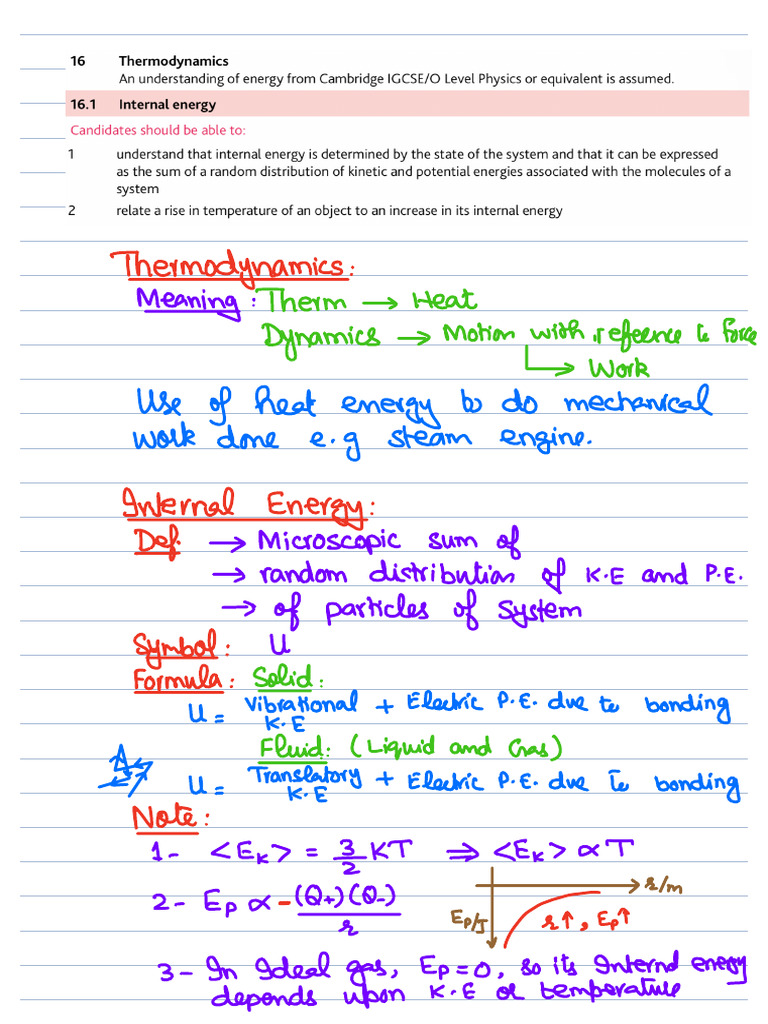 16 Thermodynamics
An understanding of energy from Cambridge IGCSE/O Level Physics or equivalent is assumed.
16.1 Internal energy
Candidates should be able to:
1 understand that internal energy is determined by the state of the system and that it can be expressed
as the sum of a random distribution of kinetic and potential energies associated with the molecules of a
system
2 relate a rise in temperature of an object to an increase in its internal energy
Thermodynamics:
Meaning: Therm → Heat
Dynamics → Motion with reference to force
→ Work
Use of heat energy to do mechanical
work done e.g steam engine.
Internal Energy:
Def. → Microscopic sum of
→ random distribution of K.E and P.E.
→ of particles of system
Symbol: U
Formula: Solid:
U = Vibrational K.E + Electric P.E. due to bonding
Fluid: (Liquid and Gas)
U = Translatory K.E + Electric P.E. due to bonding
Note:
1- <E_K> = 3/2 KT ⇒ <E_K> ∝ T
2- E_P ∝ -(Q+)(Q-)/r
r/m
E_P/J
r↑, E_P↑
3- In Ideal gas, E_P = 0, so its Internal energy
depends upon K.E or temperature